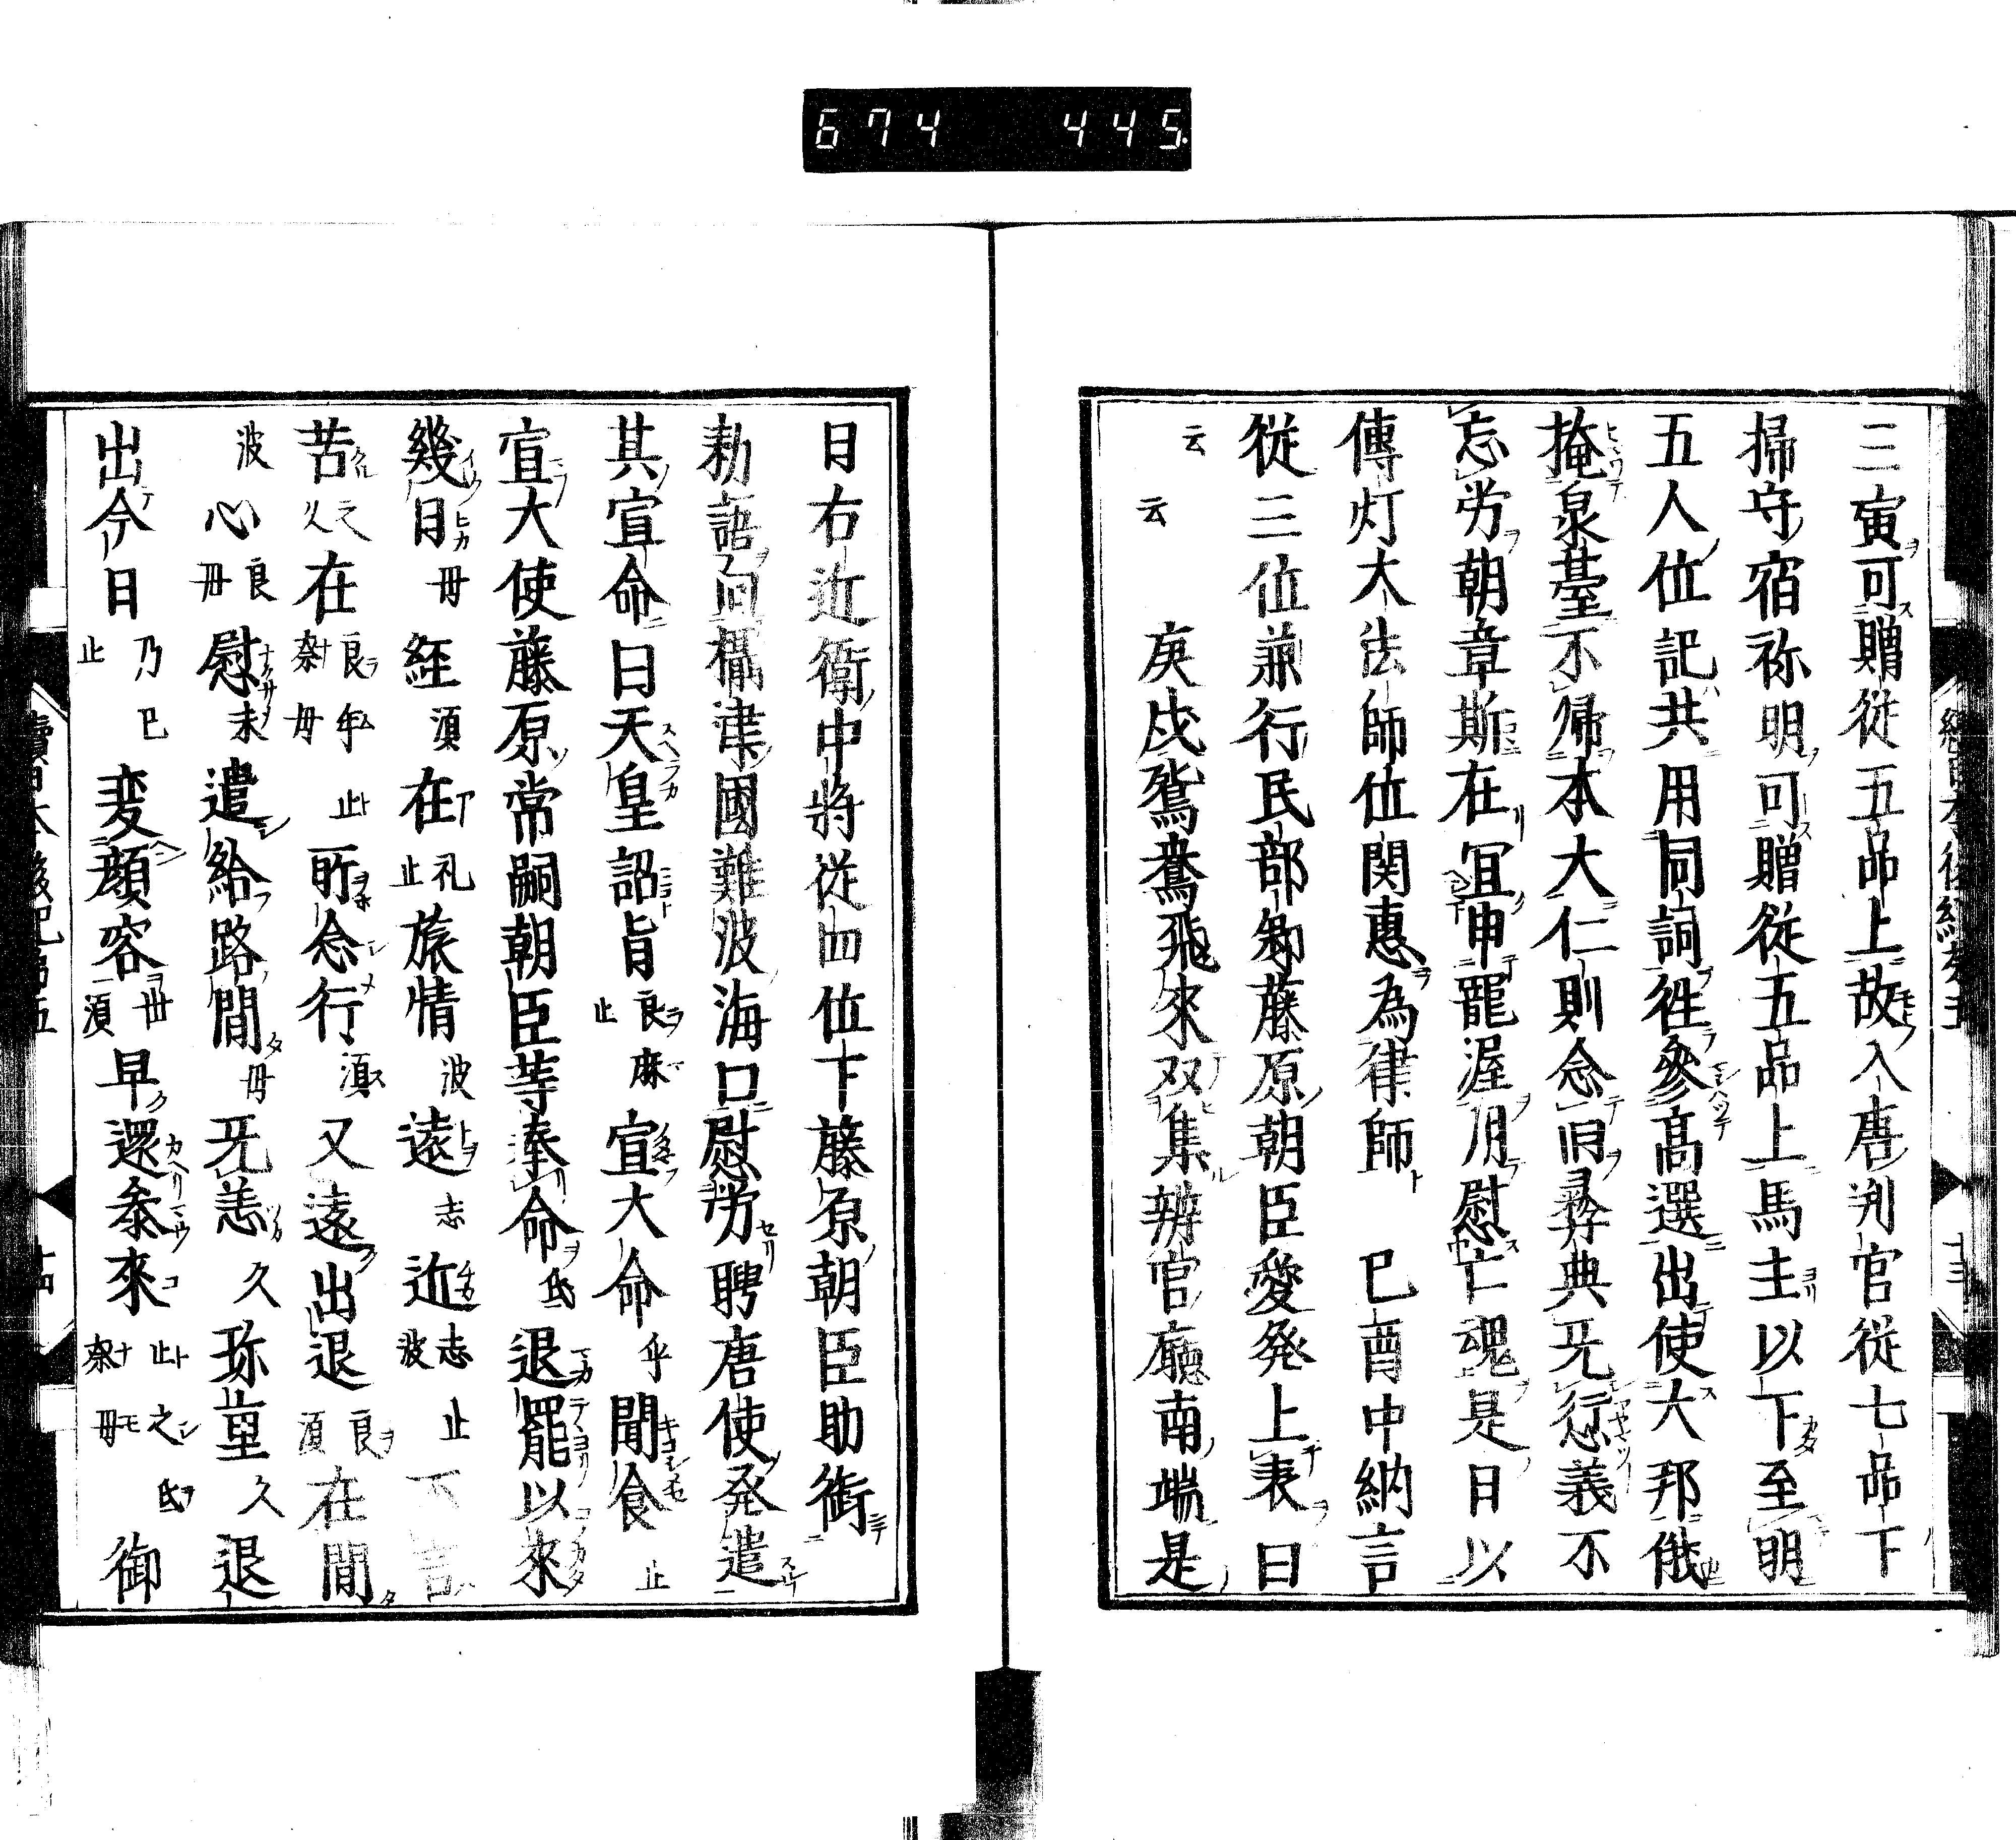 674 445
三寅可贈従五品上故入唐判官従七品下
掃守宿祢明可贈従五品上馬主以下至明
五人位記共用同詞徃參髙選出使大邦俄
掩泉臺不帰本大仁則念旧彛典无愆義不
忘労朝章斯在冝申寵渥用慰亡魂是日以
傳灯大法師位関惠為律師 巳酉中納言
従三位兼行民部卿藤原朝臣愛発上表曰
云云 庚戌鴛鴦飛來双集辨官廳南端是
日右近衛中將従四位下藤原朝臣助銜
勅語向攝津國難波海口慰労聘唐使発遣
其宣命曰天皇詔旨良止麻宣大命乎聞食止
宣大使藤原常嗣朝臣等奉命氐退罷以來
幾日毌経須在礼止旅情波遠志近志波止不言
苦久在良奈牟毌止所念行湏又遠出退良湏在間
波心良毌慰未遣給路間毌无恙久弥重久退
出今日乃止巳变顔容毌湏早還參來止奈之毌氐御